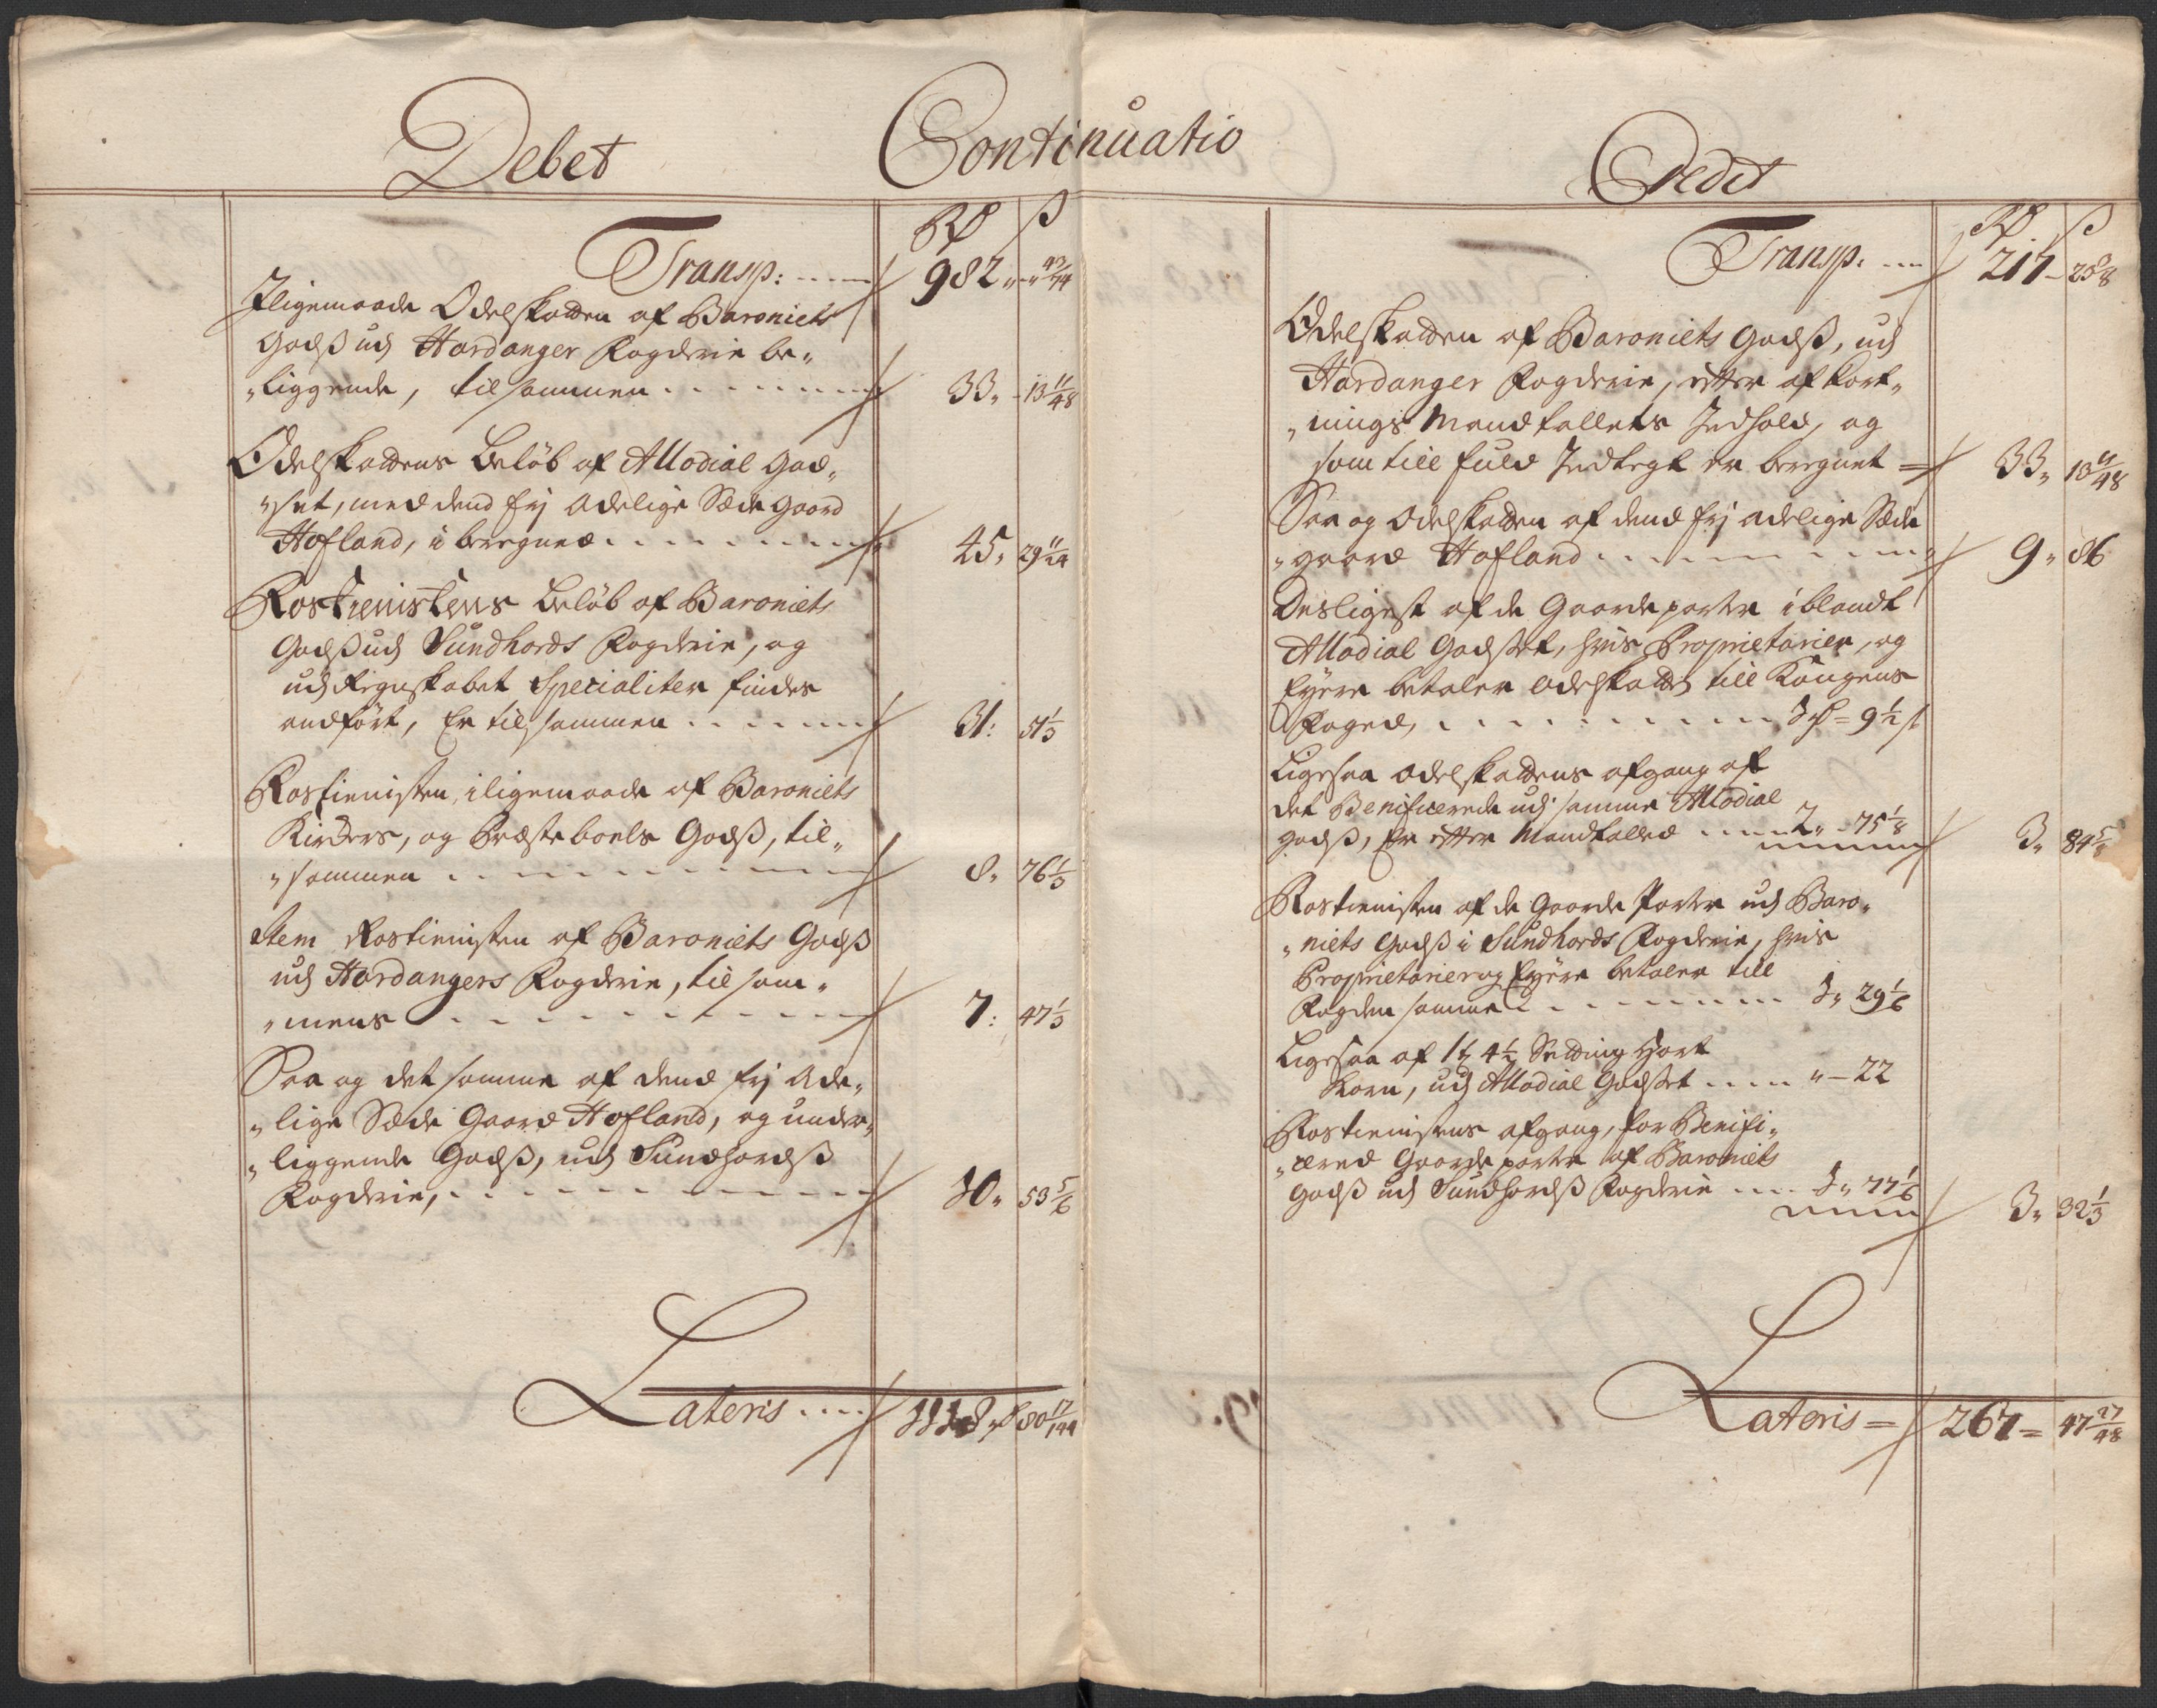 Debet
Continuatio
Rd ß
Transp: 982 „ „ 43/144
Jligemaade Odelskatten af Baroniets
Godß udj Hardanger Fogderie be„
„liggende, tilsammen 33 „ 13 11/48
Odelskattens Beløb af Allodial God„
„set, med dend frj Adelige Sæde Gaard
Hofland, i beregned 45 „ 29 11/24
Rostienistens Beløb af Baroniets
Godß udj Sundhords Fogderie, og
udj Regnskabet Specialiter findes
andført, Er tilsammen 31: 51 1/3
Rostienisten, iligemaade af Baroniets
Kirkers, og Præsteboels Godß, til„
„sammen 8 „ 76 1/3
Item Rostienisten af Baroniets Godß
udj Hardangers Fogderie, tilsam„
„mens 7: 47 1/3
Saa og det samme af dend frj Ade„
„lige Sæde Gaard Hofland, og under„
„liggende Godß, udj Sundhordß
Fogderie, 10 „ 53 5/6
Lateris 80 17/144
Credit
Rd ß
Transp: 217 – 20
Odelskatten af Baroniets Godß, udj
Hardanger Fogderie, efter afkort„
„nings Mandtallets Indhold, og
som till fuld Indtegt er beregnet = 33 „ 13 11/48
Saa og Odelskatten af dend frj Adelige Sæde
„gaard Hofland 9 „ 86
Desligest af de Gaardeparter iblandt
Allodial Godset, hvis Proprietarier, og
Eyere betaler Odelskatt till Kongens
Foged, 1 Rd = 9 1/2 ß
Ligesaa Odelskattens afgang af
det Benificerede udj samme Allodial
Godß, Er efter Mandtalled 2 „ 75 1/8
3 „ 84 5/8
Rostienisten af de Gaarde Parter udj Baro„
„niets Godß i Sundhords Fogderie, hvis
Proprietarier og Eyere betaler till
Fogden samme 1 „ 29 1/6
Ligesaa af 4 1/2 Setting
Korn, udj Allodial Godset „ – 22
Rostienistens afgang, for Benifi„
„cered Gaardeparter af Baroniets
Godß udj Sundhordß Fogderie 1 „ 77 1/6
3 „ 32 1/3
Lateris = 267 = 47 27/48